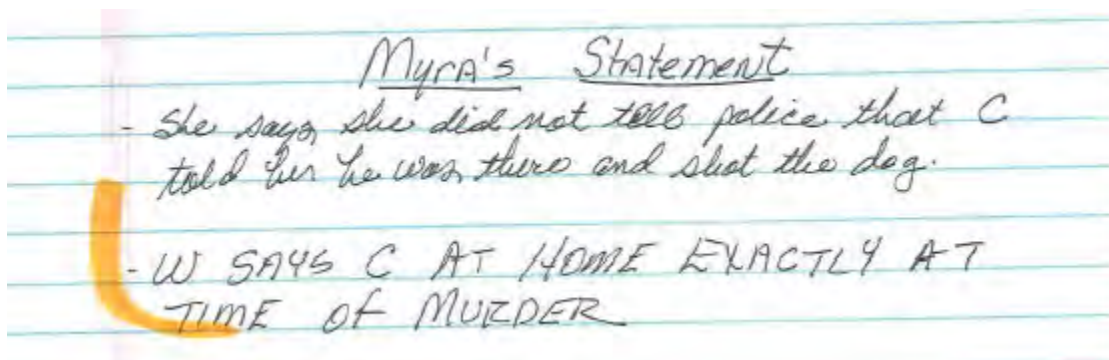 Myra's Statement
- She says she did not tell police that C
told her he was there and shot the dog.
- W SAYS C AT HOME EXACTLY AT
TIME OF MURDER